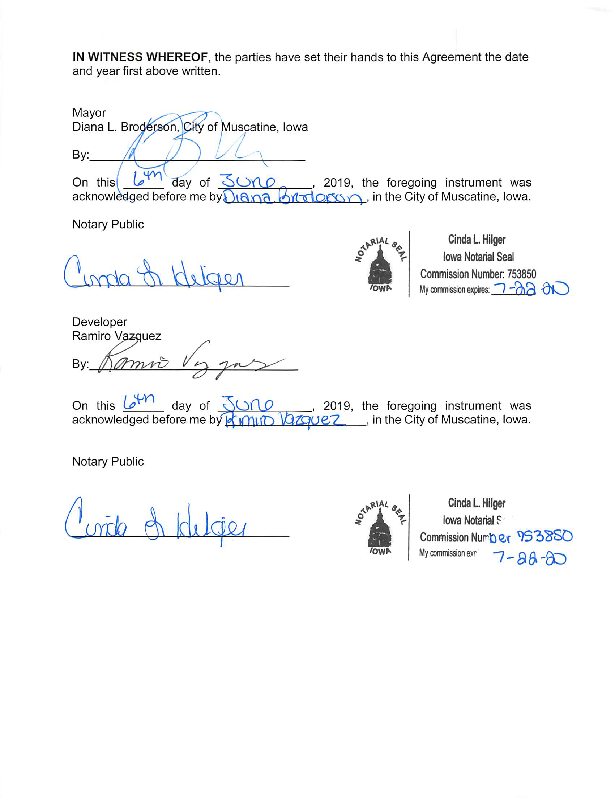 IN WITNESS WHEREOF, the parties have set their hands to this Agreement the date
and year first above written.
Mayor
Diana L. Broderson, City of Muscatine, Iowa
By:
On this 6th day of June, 2019, the foregoing instrument was
acknowledged before me by Diana Broderson, in the City of Muscatine, Iowa.
Notary Public
Cinda L Hilger
NOTARIAL SEAL
IOWA
Cinda L. Hilger
Iowa Notarial Seal
Commission Number: 753850
My commission expires: 7-22-20
Developer
Ramiro Vazquez
By: Ramiro Vazquez
On this 6th day of June, 2019, the foregoing instrument was
acknowledged before me by Ramiro Vazquez, in the City of Muscatine, Iowa.
Notary Public
Cinda L Hilger
NOTARIAL SEAL
IOWA
Cinda L. Hilger
Iowa Notarial S
Commission Number 753850
My commission exp 7-22-20